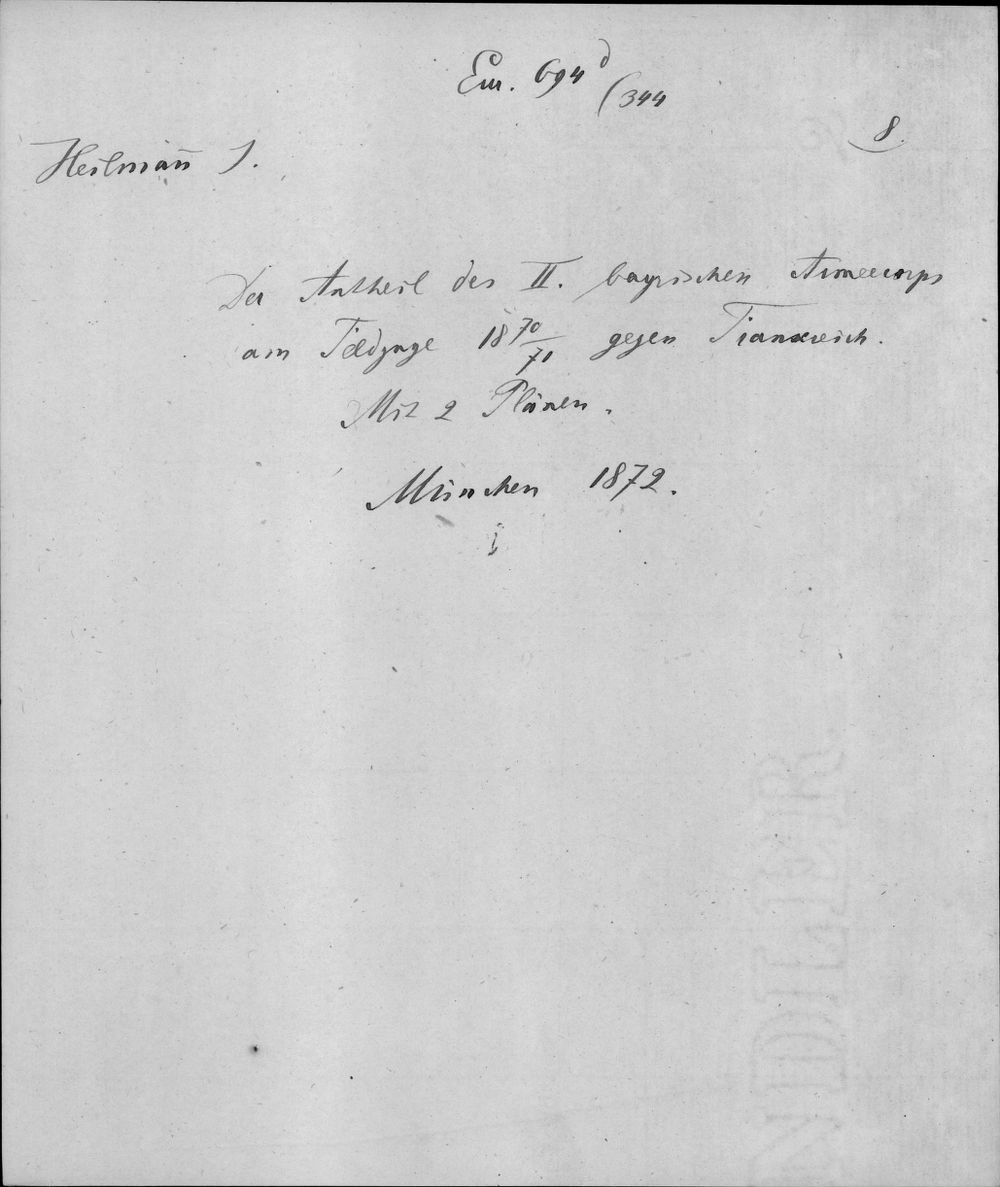 Eur. 694 d
(344
8
Heilmañ J.
Der Antheil des II. bayrischen Armeecorps
am Feldzuge 18 70/71 gegen Frankreich.
Mit 2 Plänen.
München 1872.